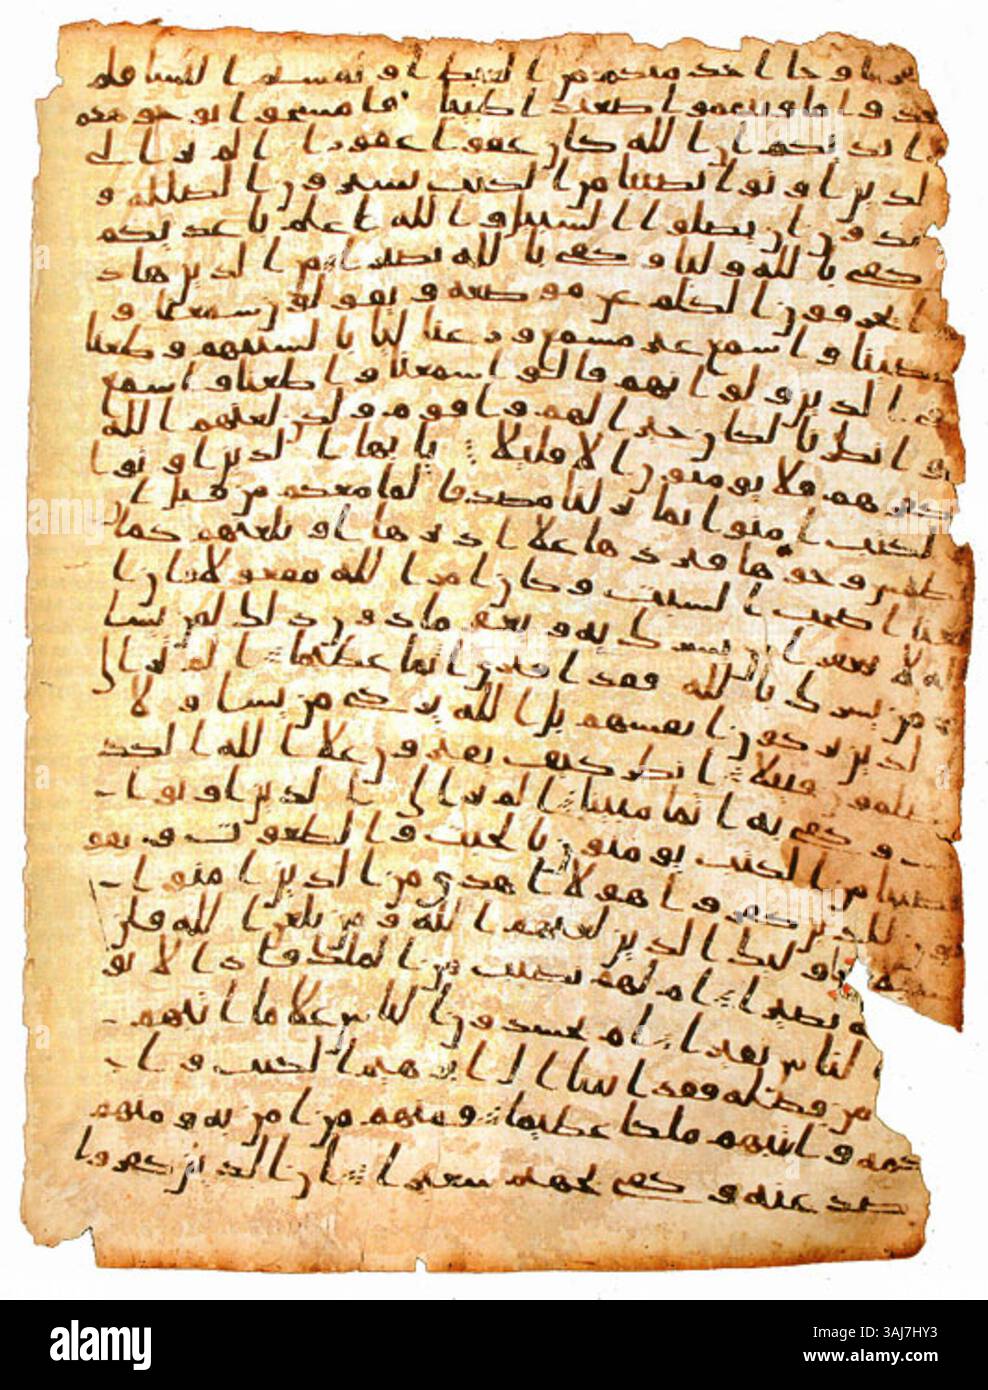 او جا احد منكم من الغيط او لمستم النسا فلم
تجدوا ما فتيمموا صعيدا طيبا فامسحوا بوجوهكم
و ايديكم ان الله كان عفوا غفورا الم تر الى
الذين اوتوا نصيبا من الكتب يشترون الضللة و
يريدون ان تضلوا السبيل و الله اعلم باعديكم
وكفى بالله وليا وكفى بالله نصيرا من الذين هاد
وا يحرفون الكلم عن موضعه و يقولون سمعنا و
عصينا و اسمع غير مسمع ورعنا ليا بالسنتهم وطعنا
في الدين ولو انهم قالوا سمعنا و اطعنا و اسمع
و انظرنا لكان خيرا لهم و اقوم ولكن لعنهم الله
بكفرهم فلا يومنون الا قليلا يايها الذين اوتوا
الكتب امنوا بما نزلنا مصدقا لما معكم من قبل ان
نطمس وجوها فنردها على ادبرها او نلعنهم كما
لعنا اصحب السبت وكان امر الله مفعولا ان ا
لله لا يغفر ان يشرك به ويغفر ما دون ذلك لمن يشا
و من يشرك بالله فقد افترى اثما عظيما الم تر الى
الذين يزكون انفسهم بل الله يزكي من يشا و لا
يظلمون فتيلا انظر كيف يفترون على الله الكذ
ب وكفى به اثما مبينا الم تر الى الذين اوتوا
نصيبا من الكتب يومنون بالجبت و الطغوت و يقو
لون للذين كفروا هولا اهدى من الذين امنوا
سبيلا اوليك الذين لعنهم الله و من يلعن الله فلن
له نصيرا ام لهم نصيب من الملك فاذا لا يو
الناس نقيرا ام يحسدون الناس على ما اتيهم
من فضله فقد اتينا ال ابرهيم الكتب و ا
لحكمه و اتينهم ملكا عظيما فمنهم من امن به و منهم
صد عنه وكفى بجهنم سعيرا ان الذين كفروا
alamy
Image ID: 3AJ7HY3
www.alamy.com